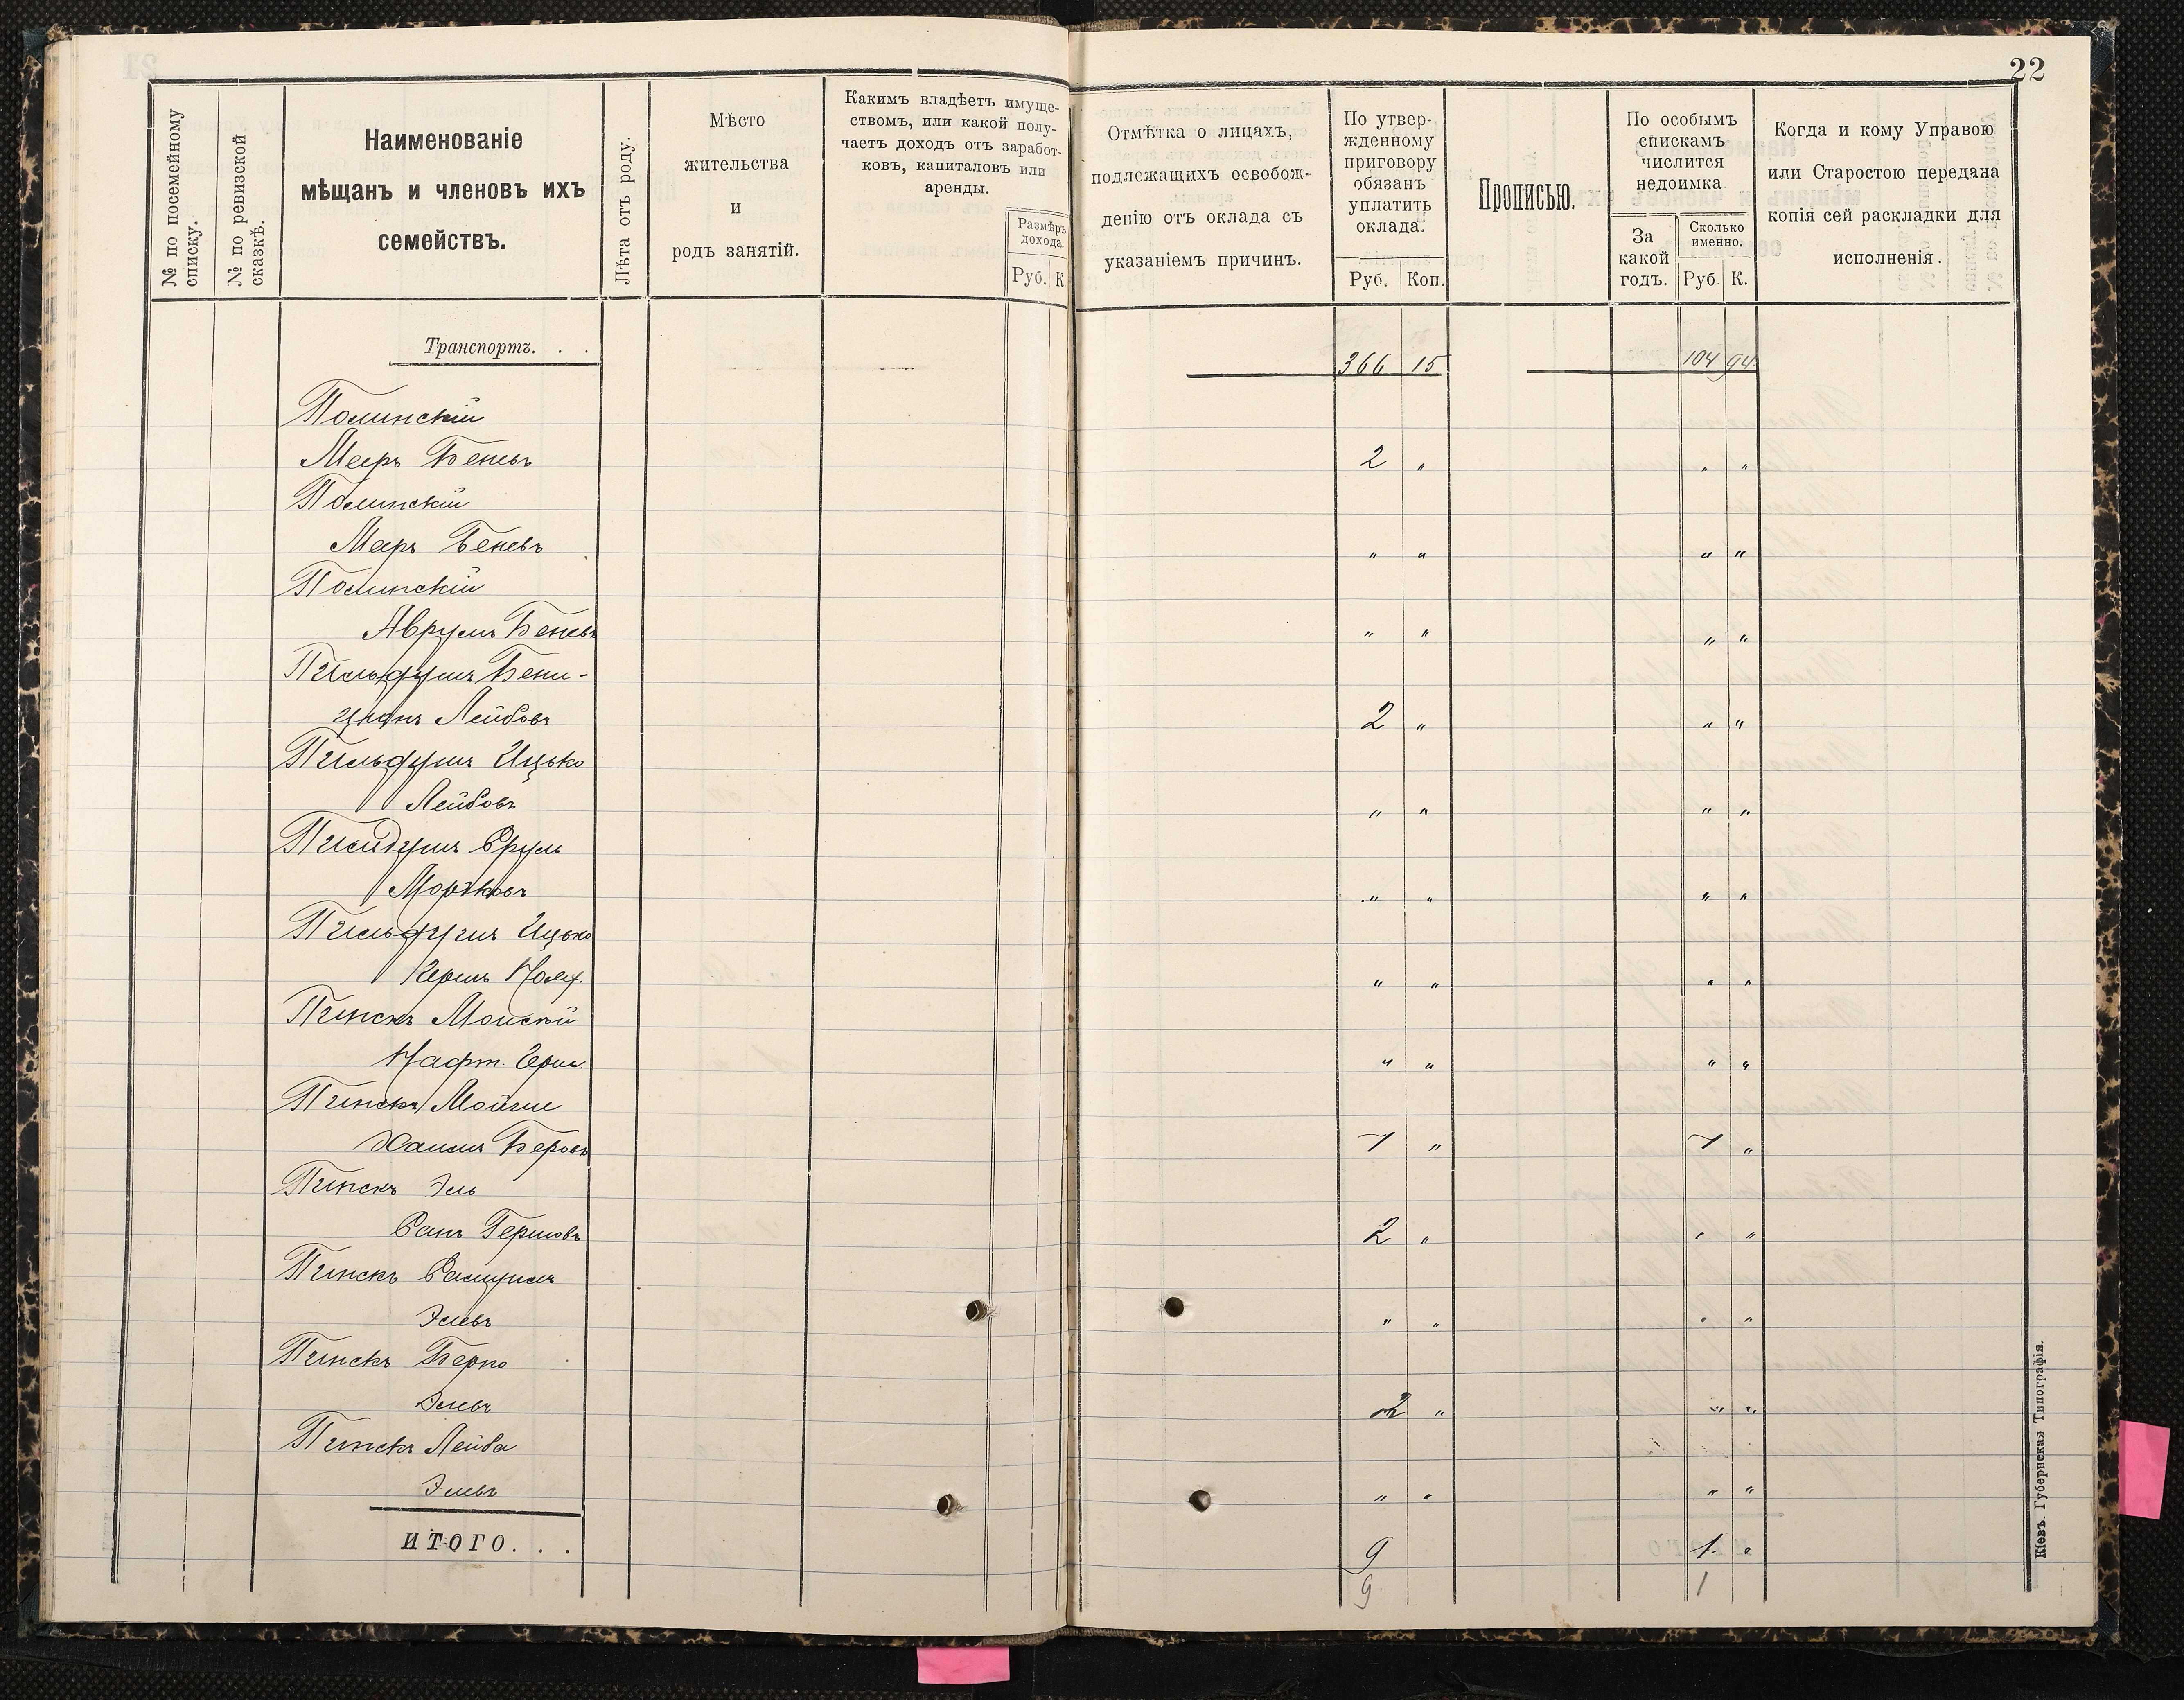 22
№ по посемейному списку.
№ по ревизской сказкѣ.
Наименованіе
мѣщанъ и членовъ ихъ
семействъ.
Лѣта отъ роду.
Мѣсто
жительства
и
родъ занятій.
Какимъ владѣетъ имуще-
ствомъ, или какой полу-
чаетъ доходъ отъ заработ-
ковъ, капиталовъ или
аренды.
Размѣръ
дохода.
Руб. К
Отмѣтка о лицахъ,
подлежащихъ освобож-
денію отъ оклада съ
указаніемъ причинъ.
По утвер-
жденному
приговору
обязанъ
уплатить
оклада.
Руб. Коп.
Прописью.
По особымъ
спискамъ
числится
недоимка
За
какой
годъ.
Сколько
именно.
Руб. К.
Когда и кому Управою
или Старостою передана
копія сей раскладки для
исполненія.
Транспортъ. . . 366 15 104 94
Полинскій
Мееръ Беневъ 2 " " "
Полинскій
Мееръ Беневъ " " " "
Полинскій
Аврумъ Беневъ " " " "
Пильдушъ Бени-
ціонъ Лейбовъ 2 " " "
Пильдушъ Ицько
Лейбовъ " " " "
Срулъ
Мортковъ " " " "
Пильдушъ Ицько
" " " "
Пинскъ
Нафт. " " " "
Пинскъ Мойше
Хаимъ Беровъ 1 " 1 "
Пинскъ Эль
Гершовъ 2 " " "
Пинскъ
Элевъ " " " "
Пинскъ Берко
Элевъ 2 " " "
Пинскъ Лейба
Элевъ " " " "
ИТОГО. . . 9 1 "
9 1
Кіевъ. Губернская Типографія.